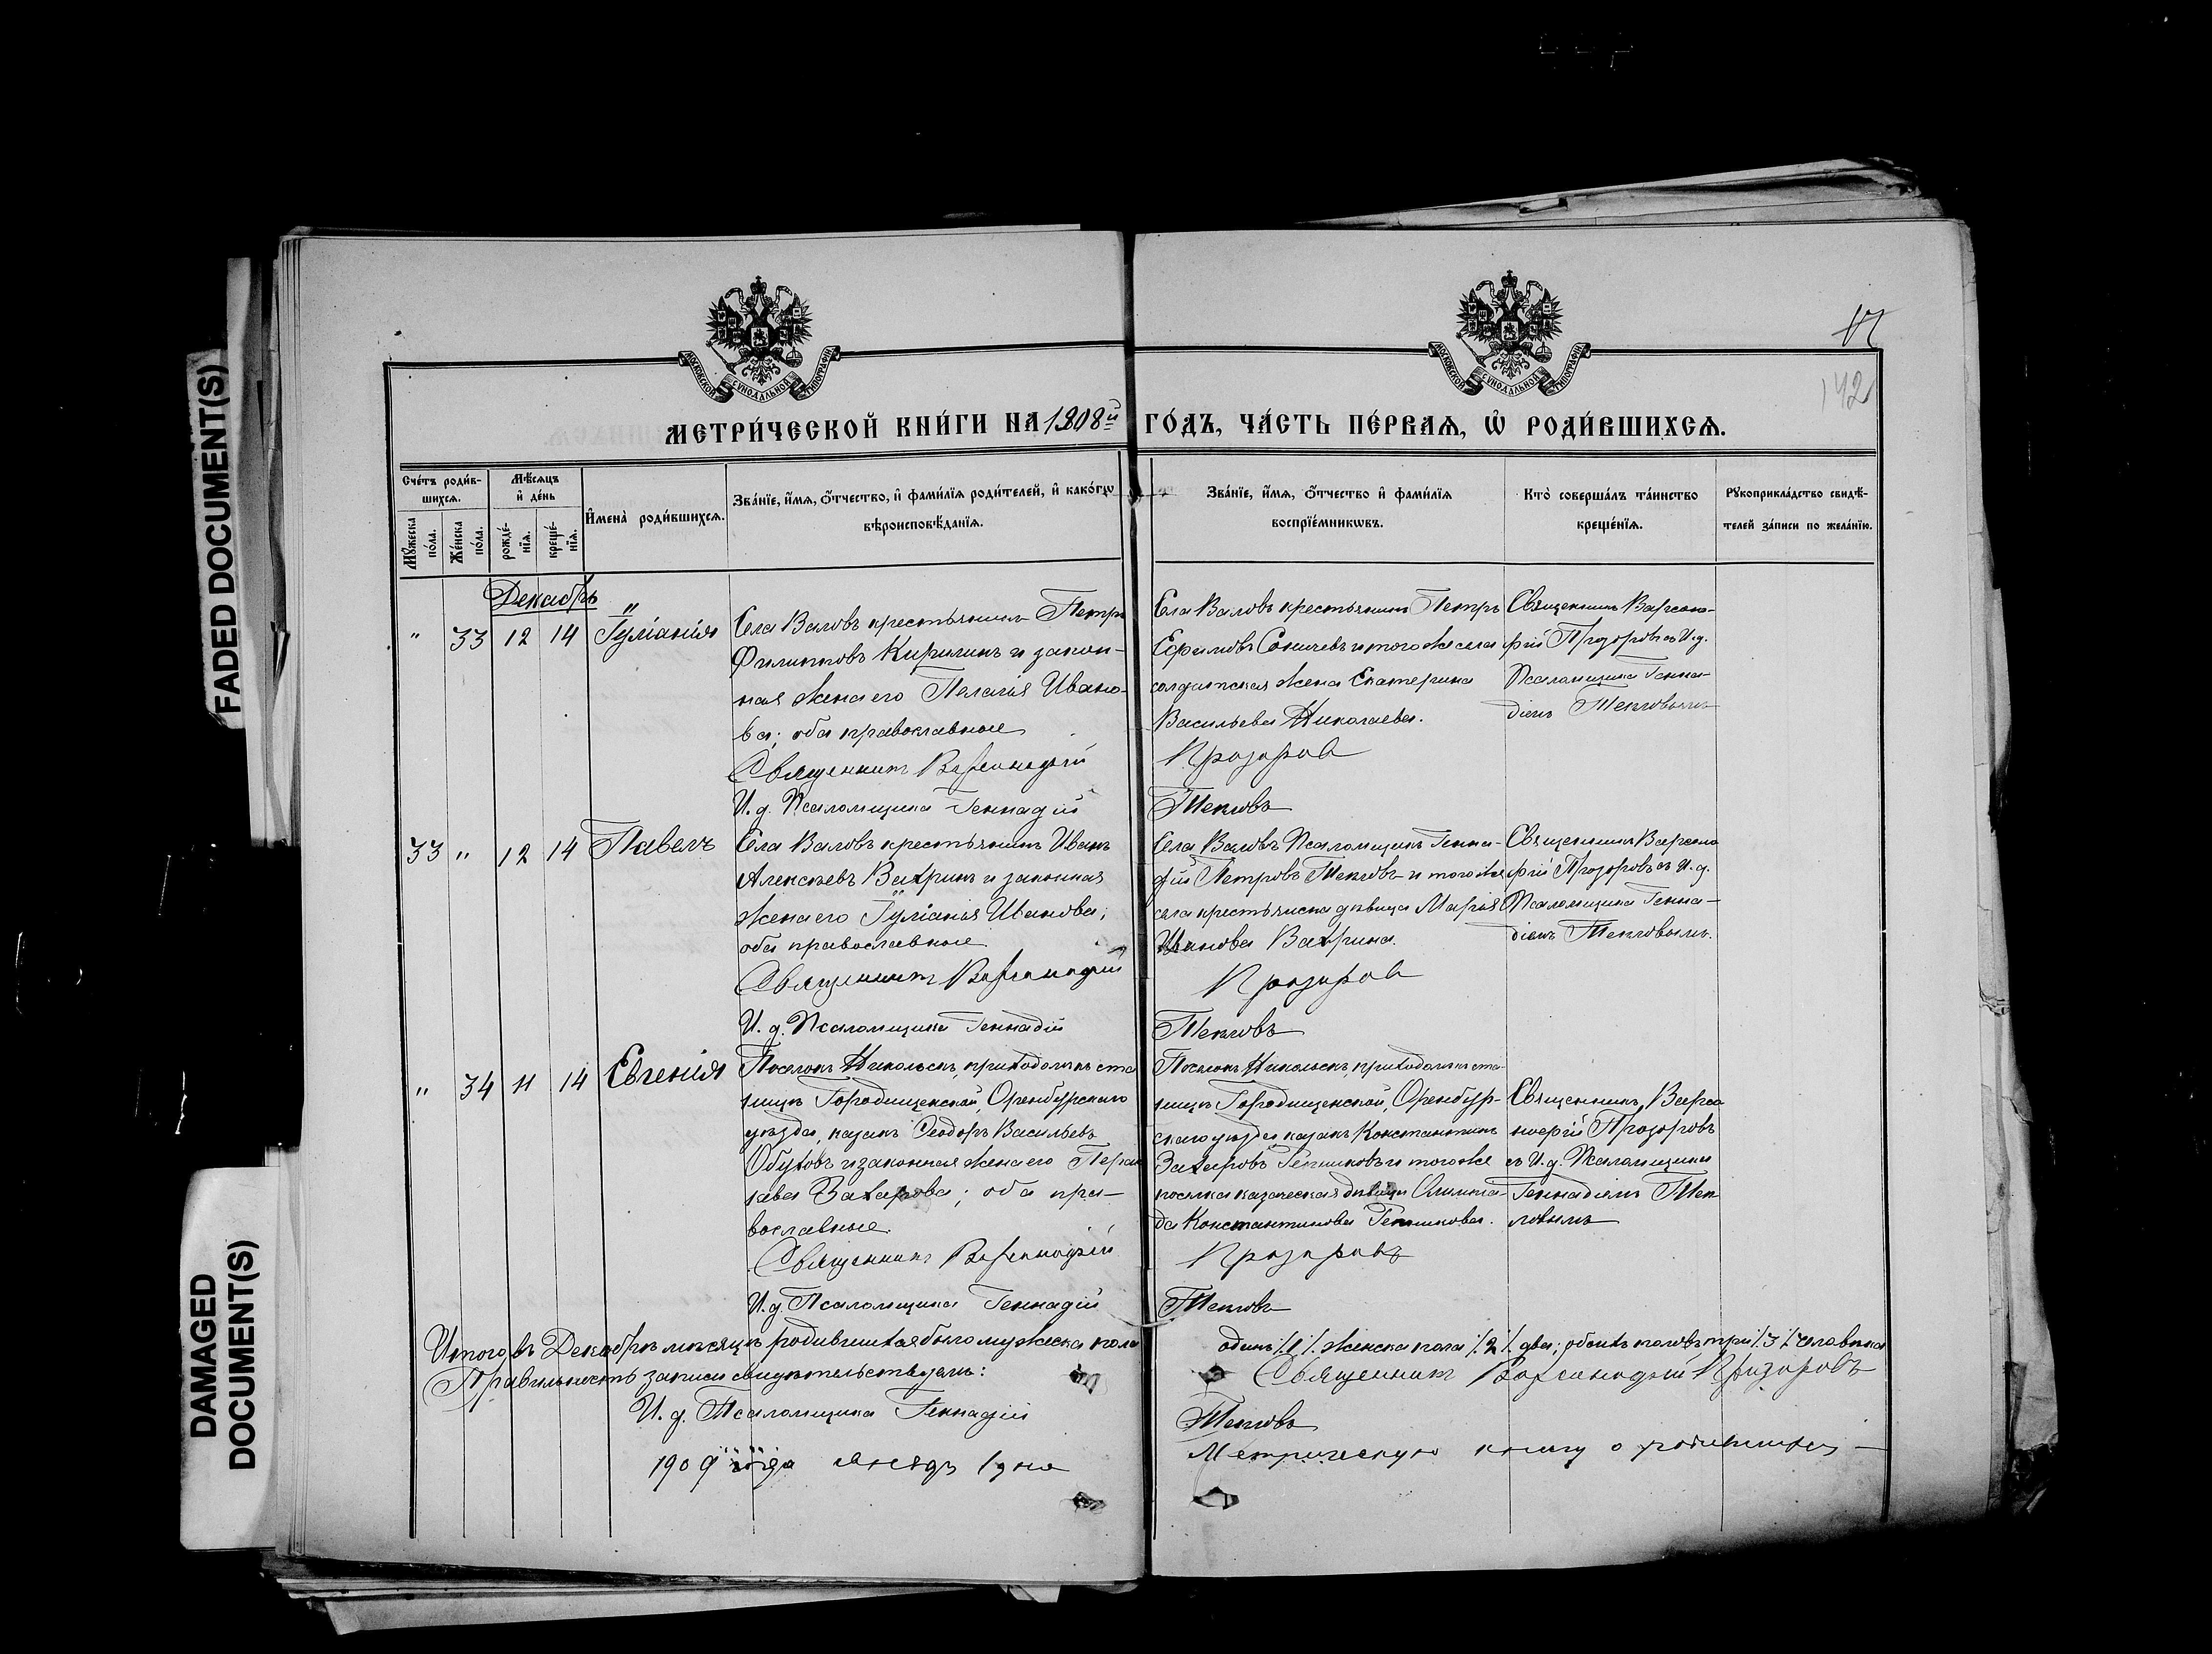 FADED DOCUMENT(S)
DAMAGED
DOCUMENT(S)
МОСКОВСКОЙ СѴНОДАЛЬНОЙ ТИПОГРАФІИ
МОСКОВСКОЙ СѴНОДАЛЬНОЙ ТИПОГРАФІИ
17
142
МЕТРИ́ЧЕСКОЙ КНИ́ГИ НА 1908й ГО́ДЪ, ЧА́СТЬ ПЕ́РВАѦ, Ѡ҆ РОДИ́ВШИХСѦ.
Сче́тъ роди́в-
шихсѧ.
Мꙋ́жеска по́ла.
Же́нска по́ла.
Мѣ́сѧцъ
и҆ де́нь
рожде́-
нїѧ.
креще́-
нїѧ.
И҆мена̀ роди́вшихсѧ.
Зва́нїе, и҆́мѧ, ѻ҆́тчество, и҆ фами́лїѧ роди́телей, и҆ како́гѡ
вѣроисповѣ́данїѧ.
Зва́нїе, и҆́мѧ, ѻ҆́тчество и҆ фами́лїѧ
воспрїе́мникѡвъ.
Кто̀ соверша́лъ та́инство
креще́нїѧ.
Рꙋкоприкла́дство свидѣ́-
телей за́писи по жела́нїю.
Декабрь
" 33 12 14 Іуліанія
Села Валовъ крестьянинъ Петръ
Филипповъ Кирилинъ и закон-
ная жена его Пелагія Ивано-
ва; оба православные
Священникъ Варсонофій
И. д. Псаломщика Геннадій
Села Валовъ крестьянинъ Петръ
Ефимовъ и того же села
солдатская жена Екатерина
Васильева Николаева.
Прозоров
Тепловъ
Священникъ Варсоно-
фій Прозоровъ съ И. д.
Псаломщика Генна-
діемъ Тепловымъ
33 " 12 14 Павелъ
Села Валовъ крестьянинъ Иванъ
Алексѣевъ Вахринъ и законная
жена его Іуліанія Иванова;
оба православные
Священникъ Варсонофій
И. д. Псаломщика Геннадій
Села Валовъ Псаломщикъ Генна-
дій Петровъ Тепловъ и того же
села крестьянска дѣвица Марія
Иванова Вахрина.
Прозоров
Тепловъ
Священникъ Варсоно
фій Прозоровъ съ И. д.
Псаломщика Генна-
діемъ Тепловымъ.
" 34 11 14 Евгенія
Поселокъ Никольскъ, приходомъ ста
ницѣ Городищенской, Оренбургскаго
уѣзда, казакъ Ѳеодоръ Васильевъ
Обуховъ и законная жена его Параc
кева Захарова; оба пра-
вославные
Священникъ Варсонофій
И. д. Псаломщика Геннадій
Поселокъ Никольскъ, приходомъ ста-
ницѣ Городищенской, Оренбур-
скаго уѣзда, казакъ Константинъ
Захаровъ и того же
поселка казаческая дѣвица Олимпіа-
да Константинова
Прозоровъ
Тепловъ
Священникъ Варсо
нофій Прозоровъ
съ И. д. Псаломщика
Геннадіемъ Теп
ловымъ
Итого въ Декабрѣ мѣсяцѣ родившихся было мужеска пола одинъ /.1/. женска пола /.2/. два; обоихъ половъ три /.3/. человѣка
Правильность записи свидѣтельствуемъ: Священникъ Варсонофій Прозоровъ
И. д. Псаломщика Геннадій Тепловъ
1909 года Января 1 дня Метрическую книгу о родившихся —